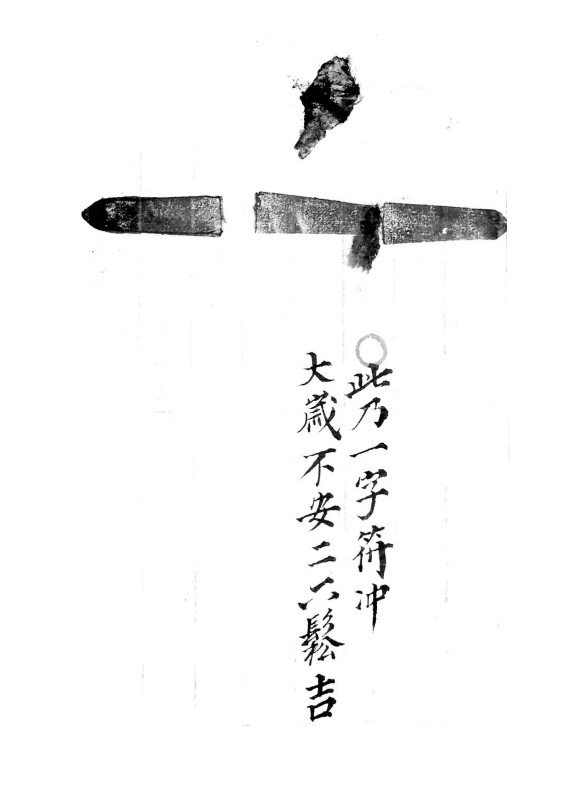 此乃一字符冲
大歳不安二六鬆吉